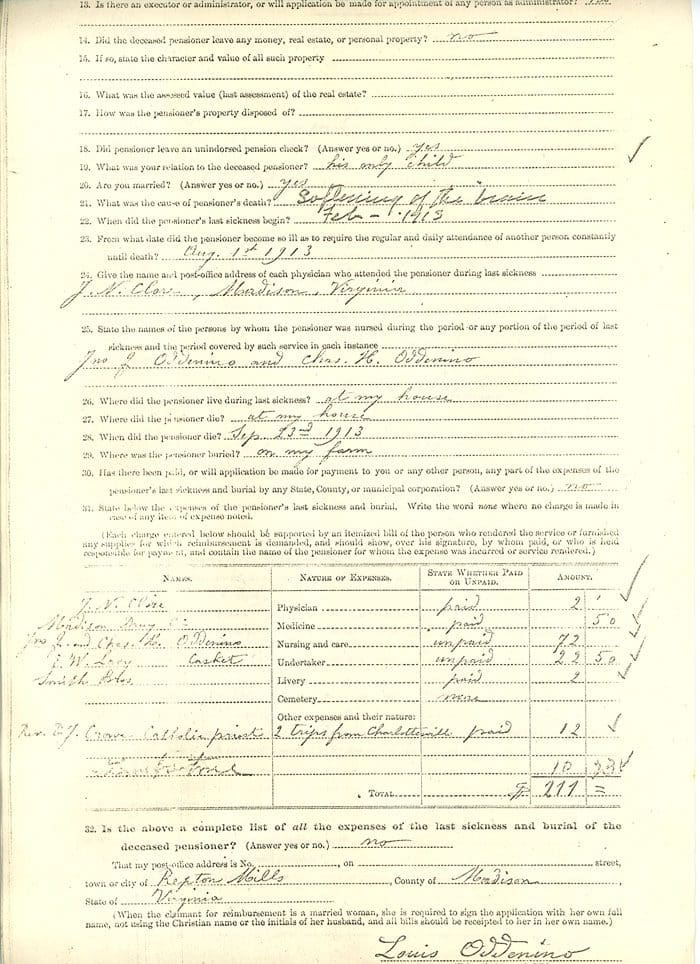 13. Is there an executor or administrator, or will application be made for appointment of any person as administrator?
14. Did the deceased pensioner leave any money, real estate, or personal property? no
15. If so, state the character and value of all such property
16. What was the assessed value (last assessment) of the real estate?
17. How was the pensioner's property disposed of?
18. Did pensioner leave an unindorsed pension check? (Answer yes or no.) yes
19. What was your relation to the deceased pensioner? his only child
20. Are you married? (Answer yes or no.) yes
21. What was the cause of pensioner's death? Softening of the brain
22. When did the pensioner's last sickness begin? Feb - 1913
23. From what date did the pensioner become so ill as to require the regular and daily attendance of another person constantly
until death? Aug. 1st 1913
24. Give the name and post-office address of each physician who attended the pensioner during last sickness
J. N. Clore, Madison, Virginia
25. State the names of the persons by whom the pensioner was nursed during the period or any portion of the period of last
sickness and the period covered by such service in each instance
Jno J Oddenino and Chas. H. Oddenino
26. Where did the pensioner live during last sickness? at my house
27. Where did the pensioner die? at my house
28. When did the pensioner die? Sep. 23rd 1913
29. Where was the pensioner buried? on my farm
30. Has there been paid, or will application be made for payment to you or any other person, any part of the expenses of the
pensioner's last sickness and burial by any State, County, or municipal corporation? (Answer yes or no.) no
31. State below the expenses of the pensioner's last sickness and burial. Write the word none where no charge is made in
case of any item of expense noted.
(Each charge entered below should be supported by an itemized bill of the person who rendered the service or furnished
any supplies for which reimbursement is demanded, and should show, over his signature, by whom paid, or who is held
responsible for payment, and contain the name of the pensioner for whom the expense was incurred or service rendered.)
NAMES. NATURE OF EXPENSES. STATE WHETHER PAID OR UNPAID. AMOUNT.
J. N. Clore Physician paid 2
Madison Drug Co Medicine paid 50
Jno J. and Chas. H. Oddenino Nursing and care unpaid 72
Casket Undertaker unpaid 22 50
Smith Bros Livery paid 2
Cemetery none
Other expenses and their nature:
Rev. Crowe Catholic priest 2 trips from Charlottesville paid 12
10
TOTAL
32. Is the above a complete list of all the expenses of the last sickness and burial of the
deceased pensioner? (Answer yes or no.) no
That my post-office address is No. , on street,
town or city of Repton Mills , County of Madison ,
State of Virginia
(When the claimant for reimbursement is a married woman, she is required to sign the application with her own full
name, not using the Christian name or the initials of her husband, and all bills should be receipted to her in her own name.)
Louis Oddenino